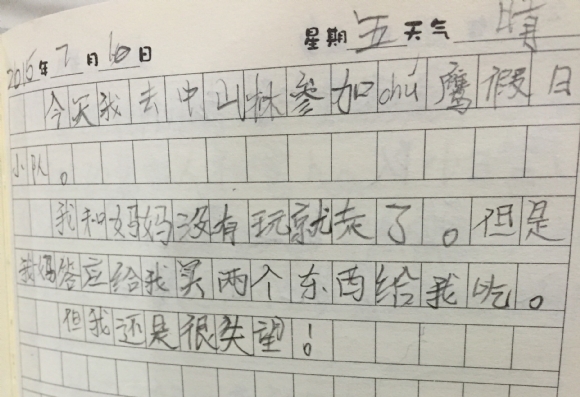 2015年7月10日 星期五天气晴
今天我去中山林参加chú鹰假日
小队。
我和妈妈没有玩就走了。但是
我妈答应给我买两个东西给我吃。
但我还是很失望！